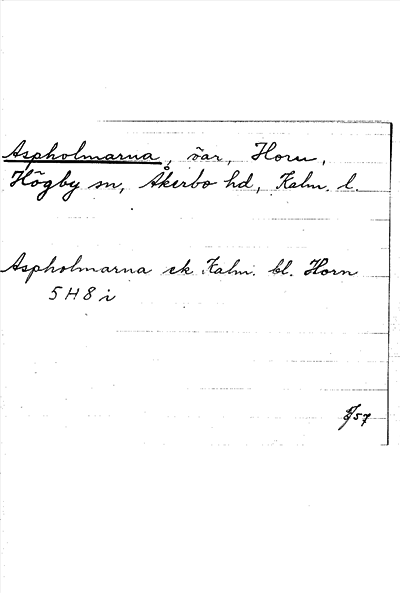 Aspholmarna, öar, Horn,
Högby sn, Åkerbo hd, Kalm. l.
Aspholmarna ek Kalm. bl. Horn
5 H 8 i